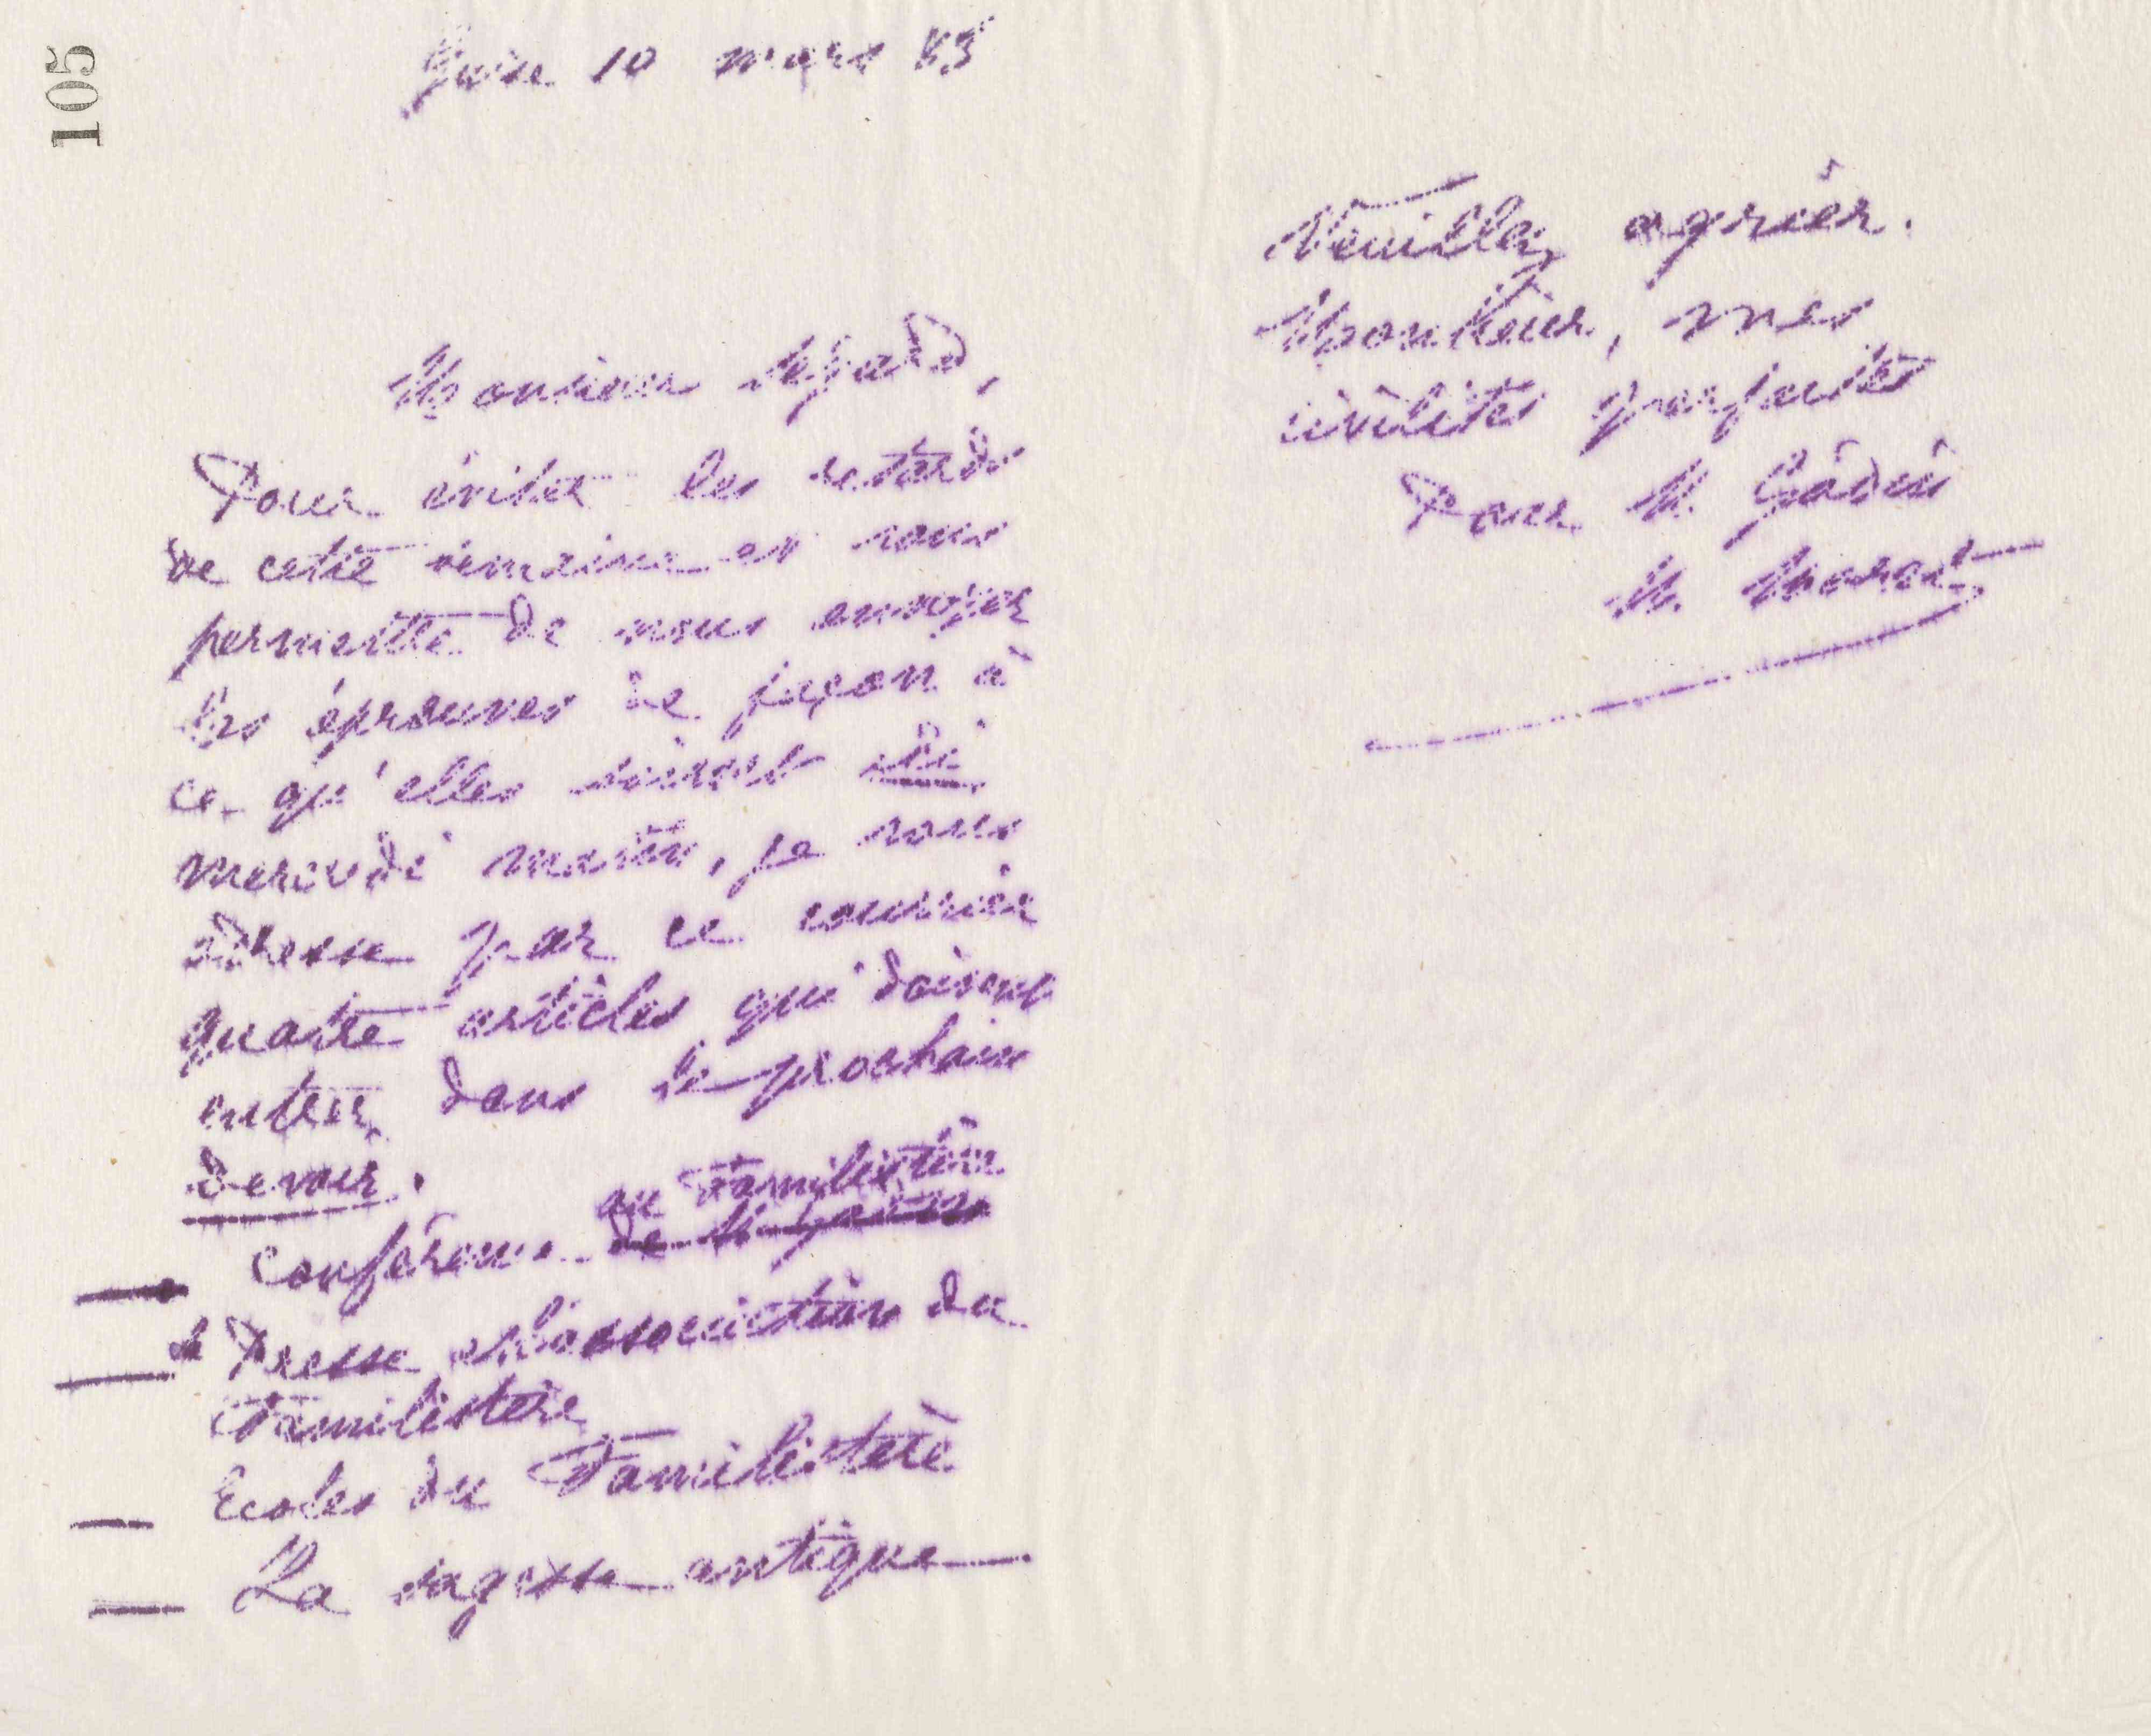 105
Guise 10 mars 83
Monsieur
Pour éviter les retards
de cette semaine et vous
permettre de nous envoyer
les épreuves de façon à
ce qu'elles soient ici
mercredi matin, je vous
adresse par ce courrier
quatre articles qui doivent
entrer dans le prochain
Devoir.
au Familistère
— Conférence de
— la Presse et l'association du
Familistère
— Ecoles du Familistère
— La sagesse antique
Veuillez agréer.
Monsieur, mes
civilités parfaites
Pour M. Godin
M. Moret